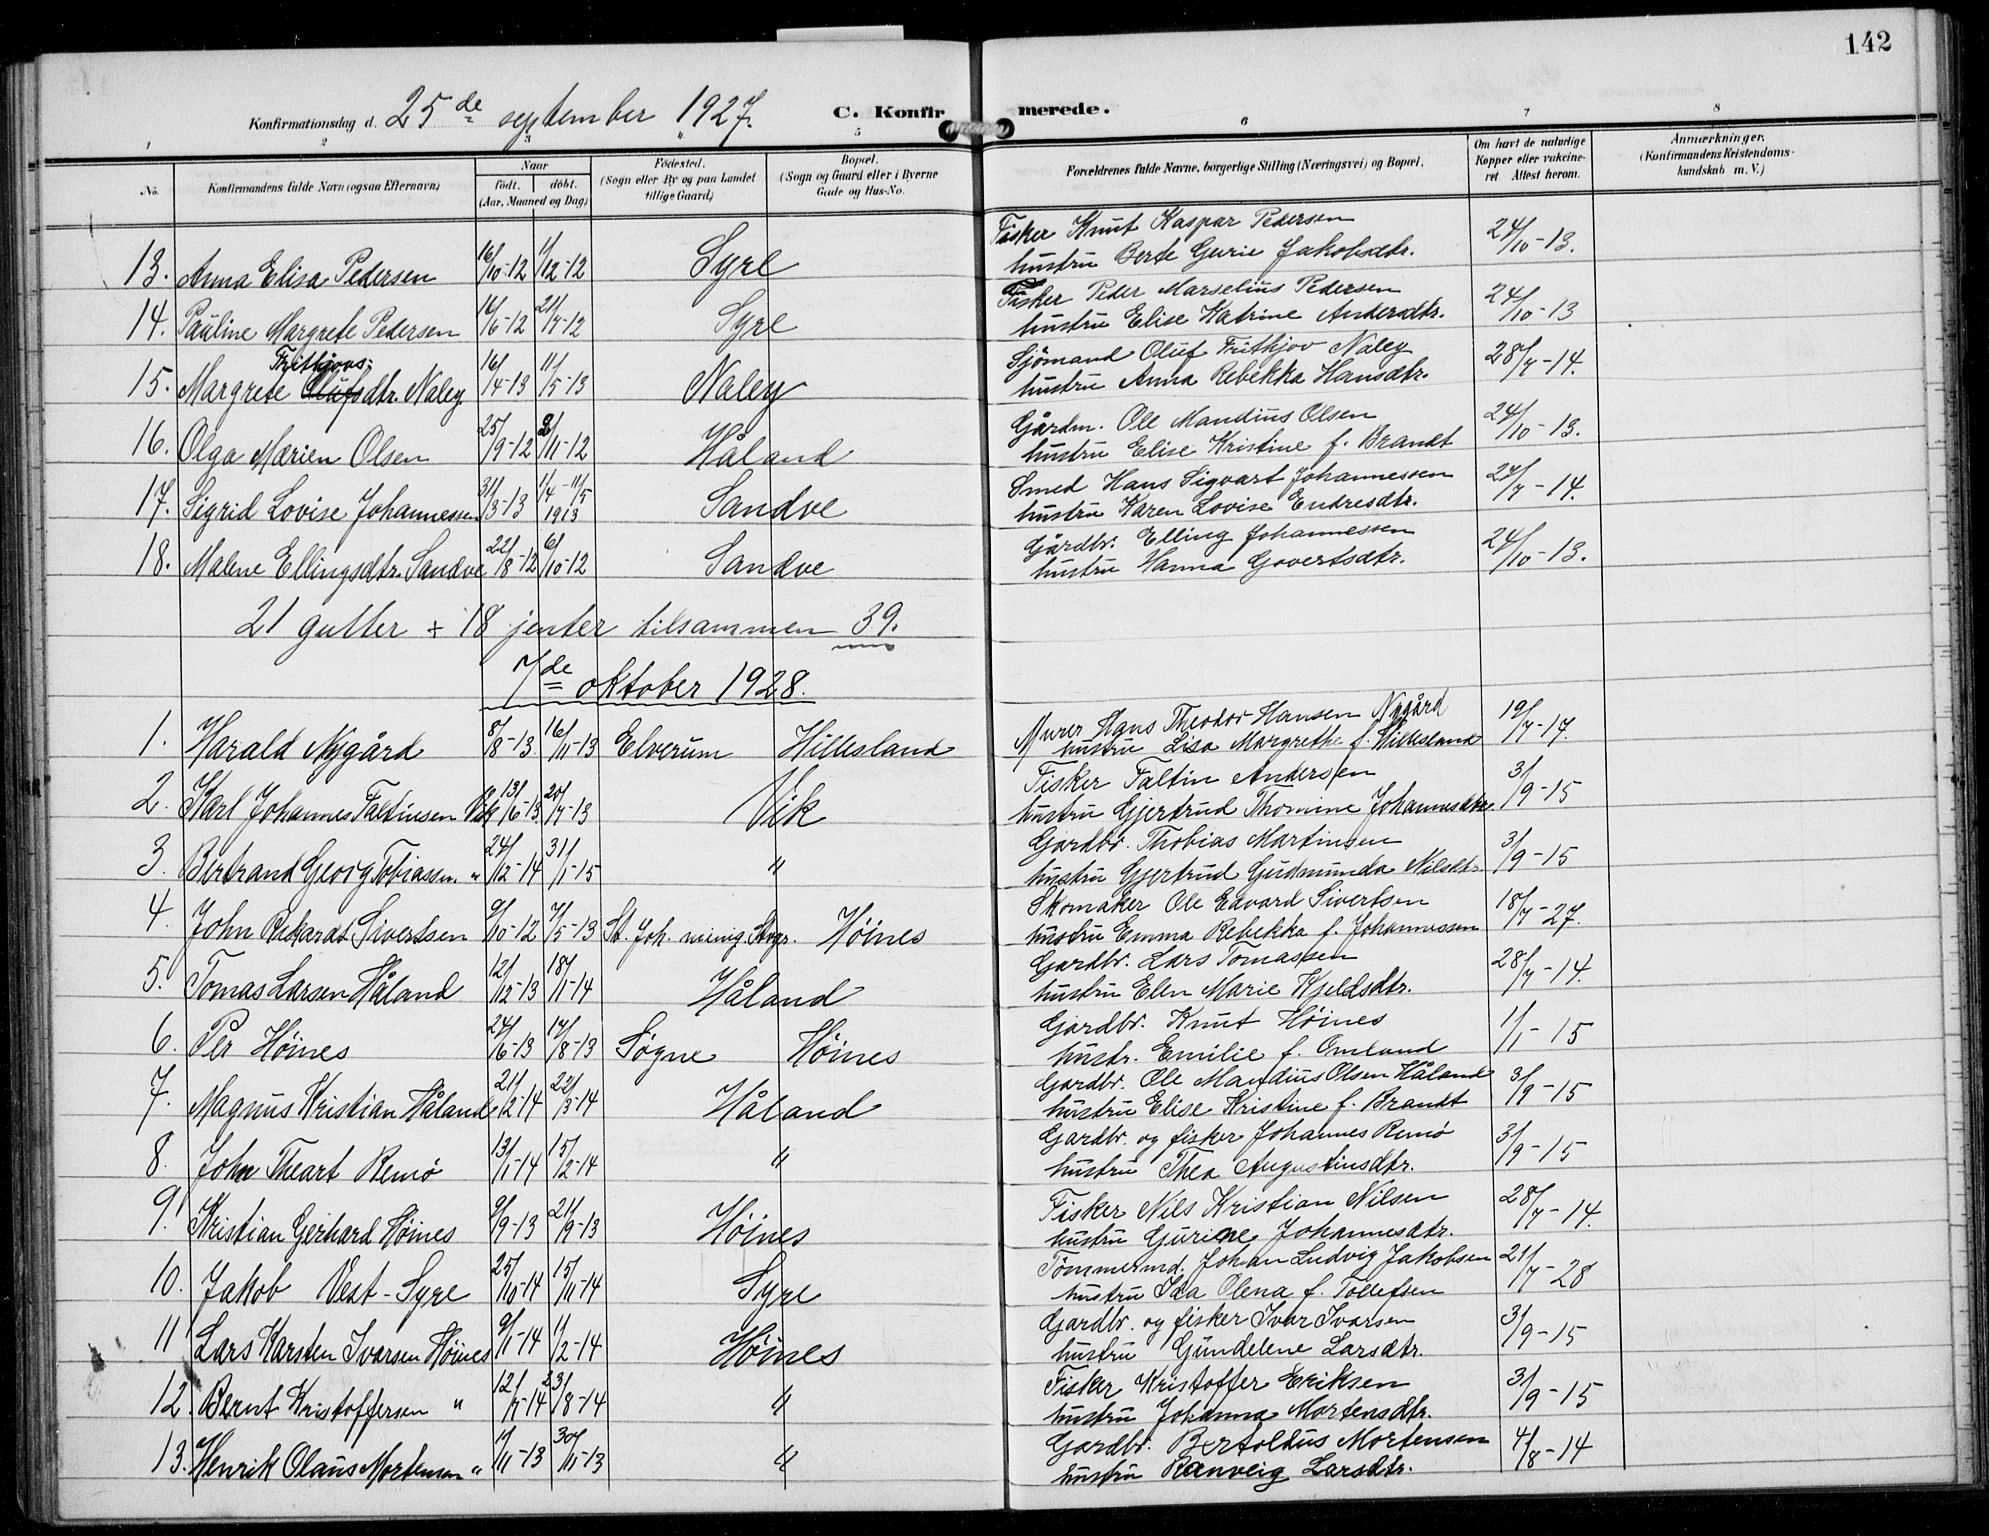 142
Konfirmationsdag d. 25de september 1927. C. Konfirmerede.
1 2 3 5 6 7 8
No. Konfirmandens fulde Navn (ogsaa Efternavn) Naar født. døbt. (Aar, Maaned og Dag) Fødested. (Sogn eller By og paa Landet tillige Gaard) Bopæl. (Sogn og Gaard eller i Byerne Gade og Hus-No.) Forældrenes fulde Navne, borgerlige Stilling (Næringsvei) og Bopæl. Om havt de naturlige Kopper eller vakcineret Attest herom. Anmærkninger. (Konfirmandens Kristendomskundskab m. V.)
13. Anna Elisa Pedersen 16/10-12 1/12-12 Syre Fisker Knut Kaspar Pedersen 24/10-13.
hustru Berte Gurie Jakobsdtr.
14. Pauline Margrete Pedersen 16/6-12 21/7-12 Syre Fisker Peder Marselius Pedersen 24/10-13
hustru Elise Katrine Andersdtr.
Fritkjovs-
15. Margrete Olufsdtr. Naley 16/4-13 11/5-13 Naley Sjømand Oluf Fritkjov Naley 28/7-14.
hustru Anna Rebekka Hansdtr.
16. Olga Marien Olsen 25/9-12 3/11-12 Håland Gårdm. Ole Mandius Olsen 24/10-13.
hustru Elise Kristine f. Brandt
17. Sigrid Lovise Johannessen 31/3-13 1/4-11/5 1913 Sandve Smed Hans Sigvart Johannessen 24/7-14.
hustru Karen Lovise Endresdtr.
18. Malene Ellingsdtr. Sandve 22/8-12 6/10-12 Sandve Gårdbr. Elling Johannessen 24/10-13.
hustru Hanna Govertsdtr.
21 gutter + 18 jenter tilsammen 39.
7de oktober 1928.
1. Harald Nygård 8/8-13. 16/11-13 Elverum Hillesland Murer Hans Theodor Hansen Nygård 19/7-17.
hustru Lisa Margrethe f. Hillesland
2. Karl Johannes Faltinsen Vik 13/6-13. 20/7-13 Vik Fisker Faltin Andersen 3/9-15
hustru Gjertrud Thomine Johannesdtr.
3. Bertrand Georg Tobiassen " 24/12-14 31/1-15 " Gardbr. Thobias Martinsen 3/9-15
hustru Gjertrud Gudmunda Nilsdtr.
4. John Rikard Sivertsen 9/10-12 7/5-13 St. Joh. menig. Stvgr. Höines Skomaker Ole Edvard Sivertsen 18/7-27.
hustru Emma Rebekka f. Johannessen
5. Tomas Larsen Håland 12/12-13 18/1-14 Håland Gardbr. Lars Tomassen 28/7-14.
hustru Elen Marie Kjeldsdtr.
6. Per Höines 24/6-13 17/8-13 Søgne Höines Gardbr. Knut Höines 1/1-15
hustr. Emilie f. Omland
7. Magnus Kristian Håland 21/2-14 22/3-14 Håland Gardbr. Ole Mandius Olsen Håland 3/9-15
hustru Elise Kristine f. Brandt
8. John Theart Remö 13/1-14 15/2-14 " Gardbr. og fisker Johannes Remö 3/9-15
hustru Thea Augustinsdtr.
9. Kristian Gerhard Höines 9/9-13 21/9-13 Höines Fisker Nils Kristian Nilsen 28/7-14.
hustru Gurine Johannesdtr.
10. Jakob Vest-Syre 25/10-14 15/11-14 Syre Tömmermd. Johan Ludvig Jakobsen 21/7-28
hustru Ida Olena f. Tollefsen
11 Lars Karsten Ivarsen Höines 9/1-14 1/2-14 Höines Gardbr. og fisker Ivar Ivarsen 3/9-15
hustru Gundelene Larsdtr.
12. Bernt Kristoffersen " 12/7-14 23/8-14 " Fisker Kristoffer Eriksen 3/9-15
hustru Johanna Mortensdtr.
13. Henrik Olaus Mortensen " 11/11-13 30/11-13 " Gardbr. Bertoldus Mortensen 4/8-14
hustru Ranveig Larsdtr.